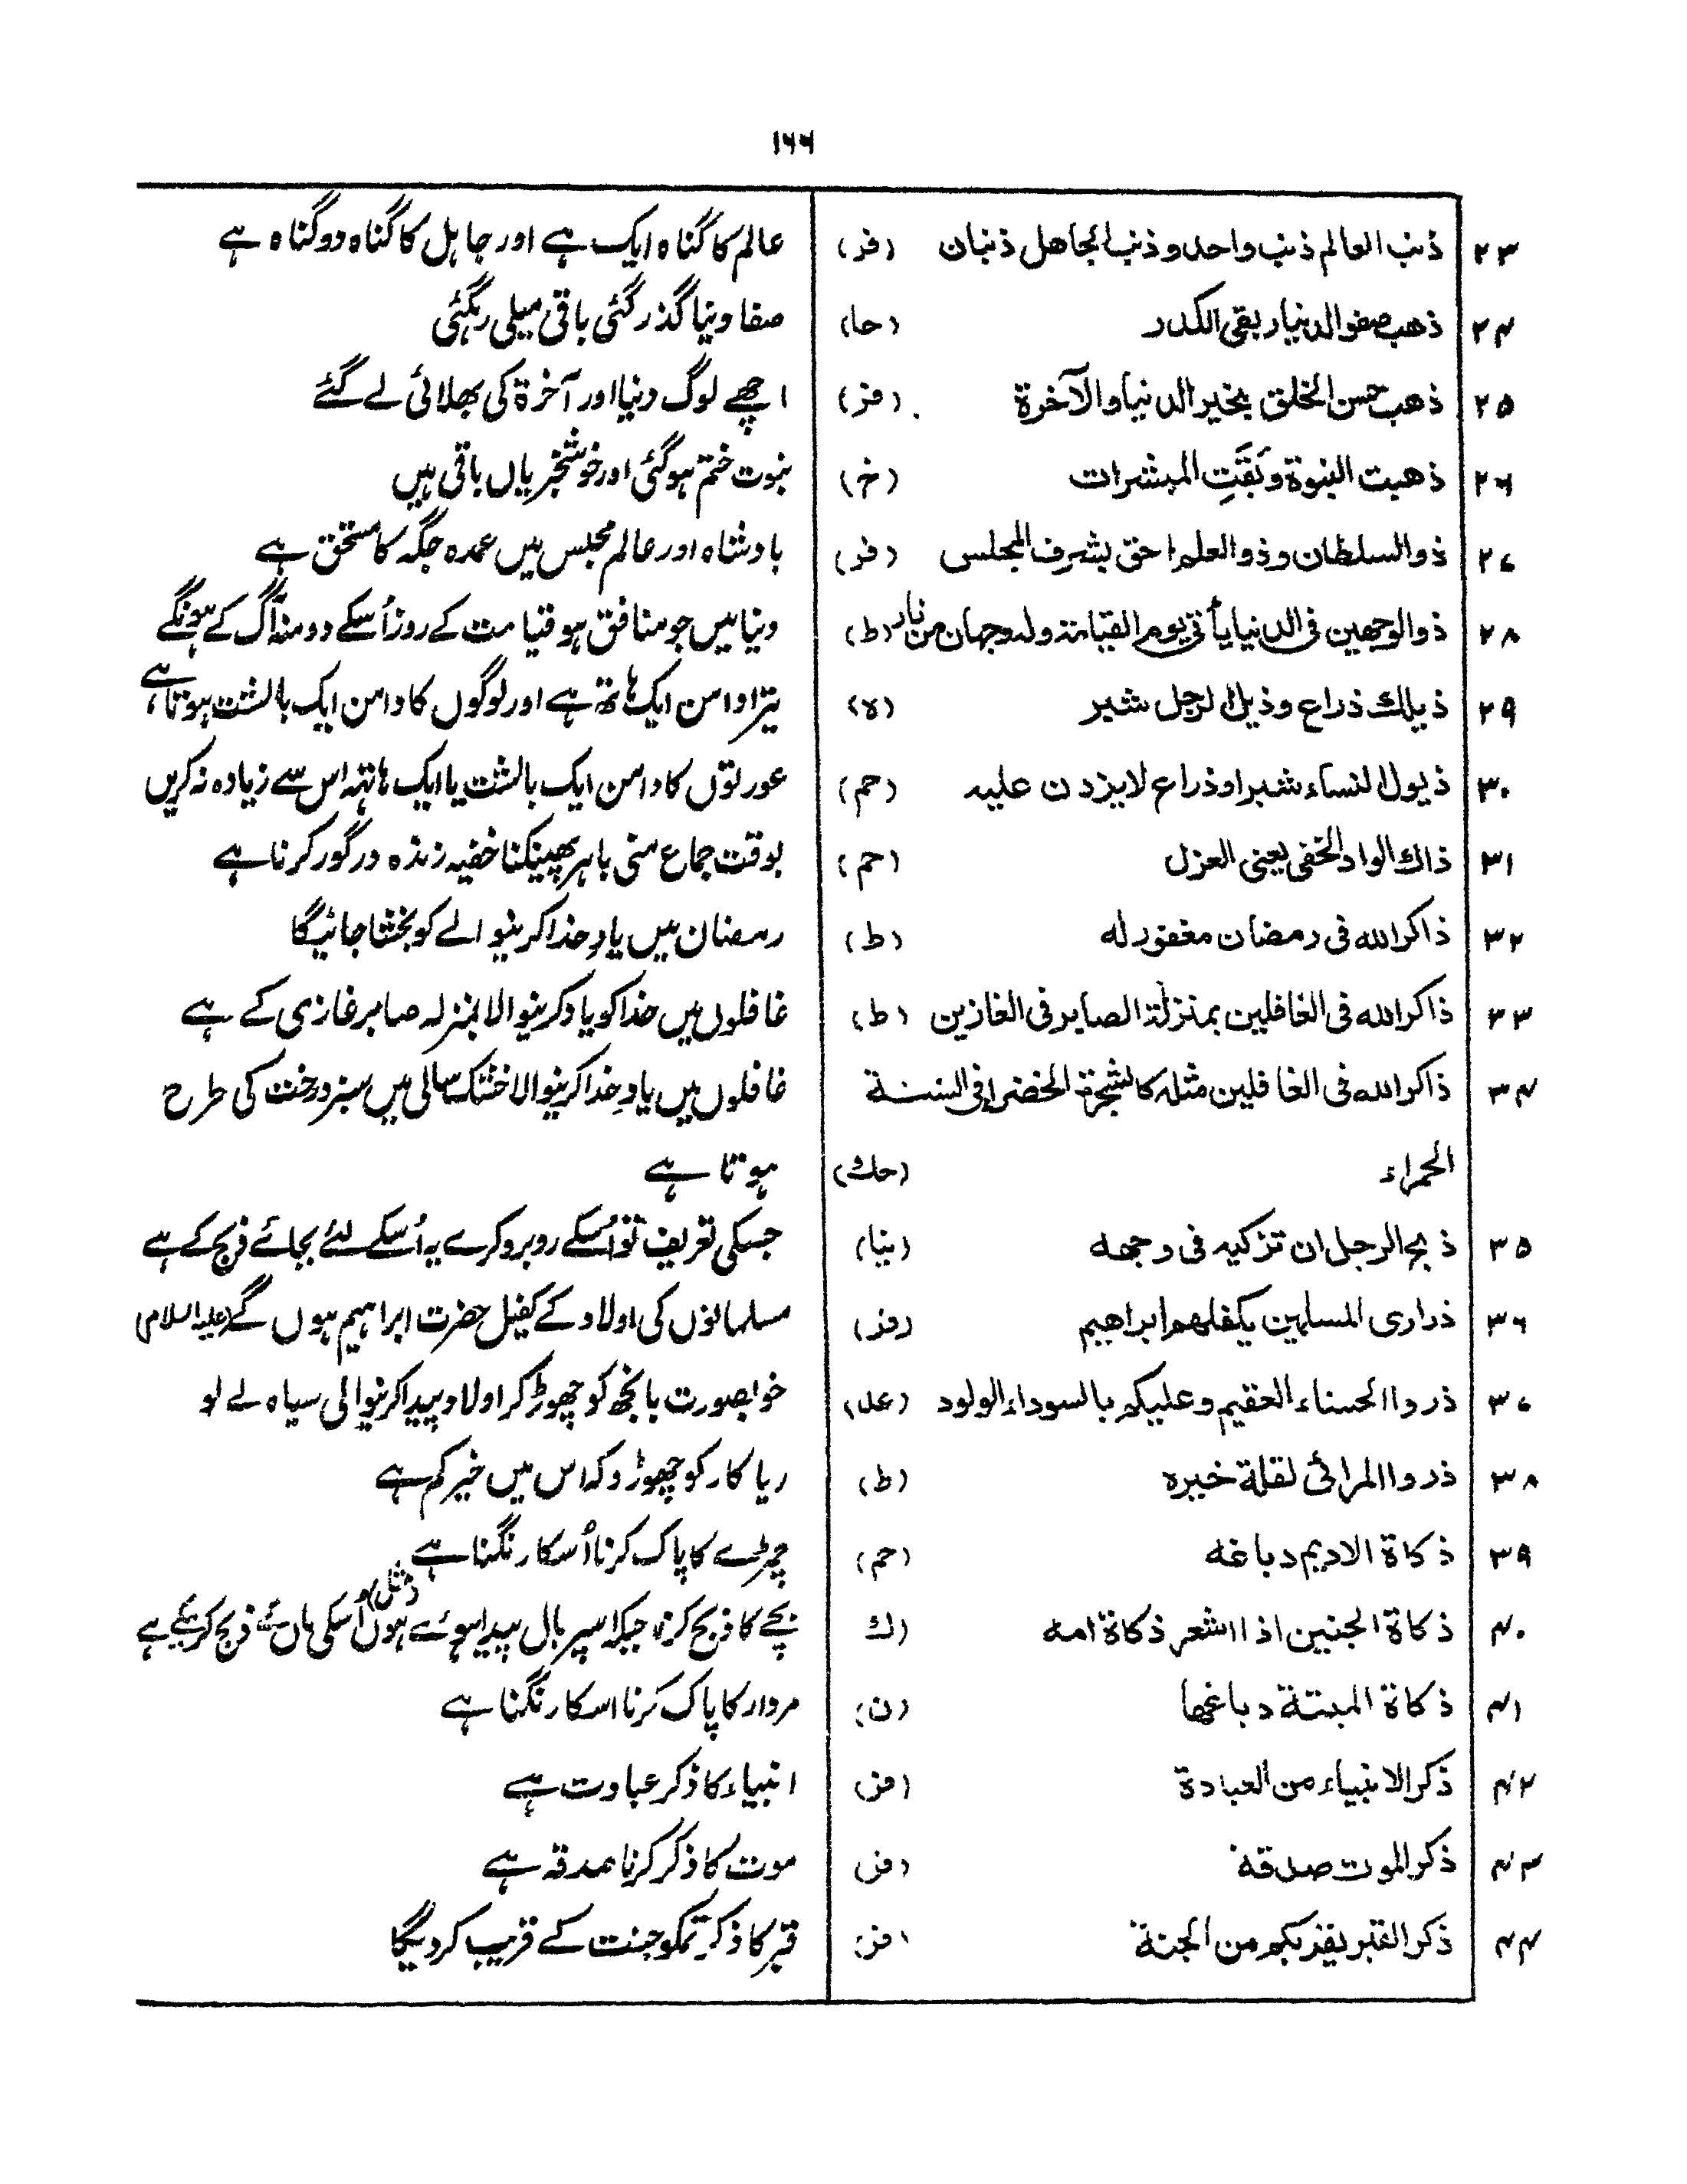 ۱۶۶
۲۳ ذنب العالم ذنب واحد و ذنب الجاهل ذنبان (فر) عالم کا گناہ ایک ہے اور جاہل کا گناہ دو گناہ ہے
۲۴ ذهب صفو الدنیا و بقی الکدر (حا) صفا دنیا گذر گئی باقی میلی رہگئی
۲۵ ذهب حسن الخلق بخیر الدنیا و الآخرة (فر) اچھے لوگ دنیا اور آخرة کی بھلائی لے گئے
۲۶ ذهبت النبوة و بَقَّتِ المبشرات (خ) نبوت ختم ہو گئی اور خوشخبریاں باقی ہیں
۲۷ ذو السلطان و ذو العلم احق بشرف المجلس (فر) بادشاہ اور عالم مجلس میں عمدہ جگہ کا مستحق ہے
۲۸ ذو الوجهین فی الدنیا یأتی یوم القیامة و له وجهان من نار (ط) دنیا میں جو منافق ہو قیامت کے روز اُسکے دو منہ آگ کے ہونگے
۲۹ ذیلك ذراع و ذیل الرجل شبر (ه) تیرا دامن ایک ہاتھ ہے اور لوگوں کا دامن ایک بالشت ہوتا ہے
۳۰ ذیول النساء شبر او ذراع لایزدن علیه (حم) عورتوں کا دامن ایک بالشت یا ایک ہاتہہ اس سے زیادہ نہ کریں
۳۱ ذاك الواد الخفی یعنی العزل (حم) بوقت جماع منی باہر پھینکنا خفیہ زندہ درگور کرنا ہے
۳۲ ذاکر الله فی رمضان مغفور له (ط) رمضان میں یادِ خدا کرنیوالے کو بخشا جائیگا
۳۳ ذاکر الله فی الغافلین بمنزلة الصابر فی الغازین (ط) غافلوں میں خدا کو یاد کرنیوالا بمنزلہ صابر غازی کے ہے
۳۴ ذاکر الله فی الغافلین مثله کالشجرة الخضراء فی السنة غافلوں میں یادِ خدا کرنیوالا خشک سالی میں سبز درخت کی طرح
الحمراء (حك) ہوتا ہے
۳۵ ذبح الرجل ان تزکیه فی وجهه (بنا) جسکی تعریف تو اُسکے روبرو کرے یہ اُسکے لئے بجائے ذبح کے ہے
۳۶ ذراری المسلمین یکفلهم ابراهیم (فر) مسلمانوں کی اولاد کے کفیل حضرت ابراہیم ہوں گے (علیہ السلام)
۳۷ ذروا الحسناء العقیم و علیکم بالسوداء الولود (عد) خوبصورت بانجھ کو چھوڑ کر اولاد پیدا کرنیوالی سیاہ لے لو
۳۸ ذروا المرائی لقلة خیره (ط) ریا کار کو چھوڑ دو کہ اس میں خیر کم ہے
۳۹ ذکاة الادیم دباغه (حم) چمڑے کا پاک کرنا اُسکا رنگنا ہے
۴۰ ذکاة الجنین اذا اشعر ذکاة امه (ك) بچے کا ذبح کرنا جبکہ اسپر بال پیدا ہوئے ہوں اُسکی ماں کے ذبح کرنیکے ہے
۴۱ ذکاة المیتة دباغها (ن) مردار کا پاک کرنا اسکا رنگنا ہے
۴۲ ذکر الانبیاء من العبادة (فر) انبیاء کا ذکر عبادت ہے
۴۳ ذکر الموت صدقة (فر) موت کا ذکر کرنا صدقہ ہے
۴۴ ذکر القبر یقربکم من الجنة (فر) قبر کا ذکر تمکو جنت کے قریب کر دیگا